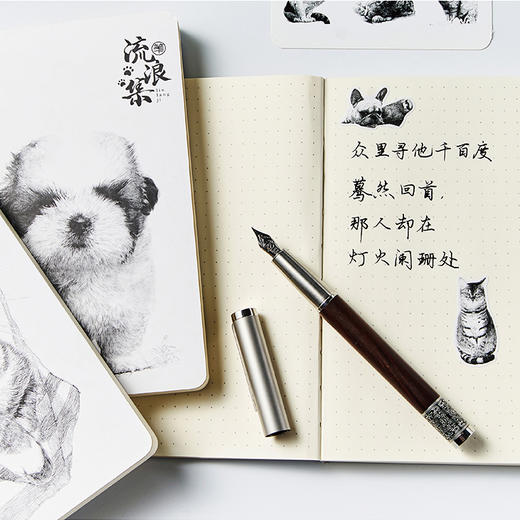 流浪集
liu
lang
ji
众里寻他千百度
蓦然回首,
那人却在
灯火阑珊处